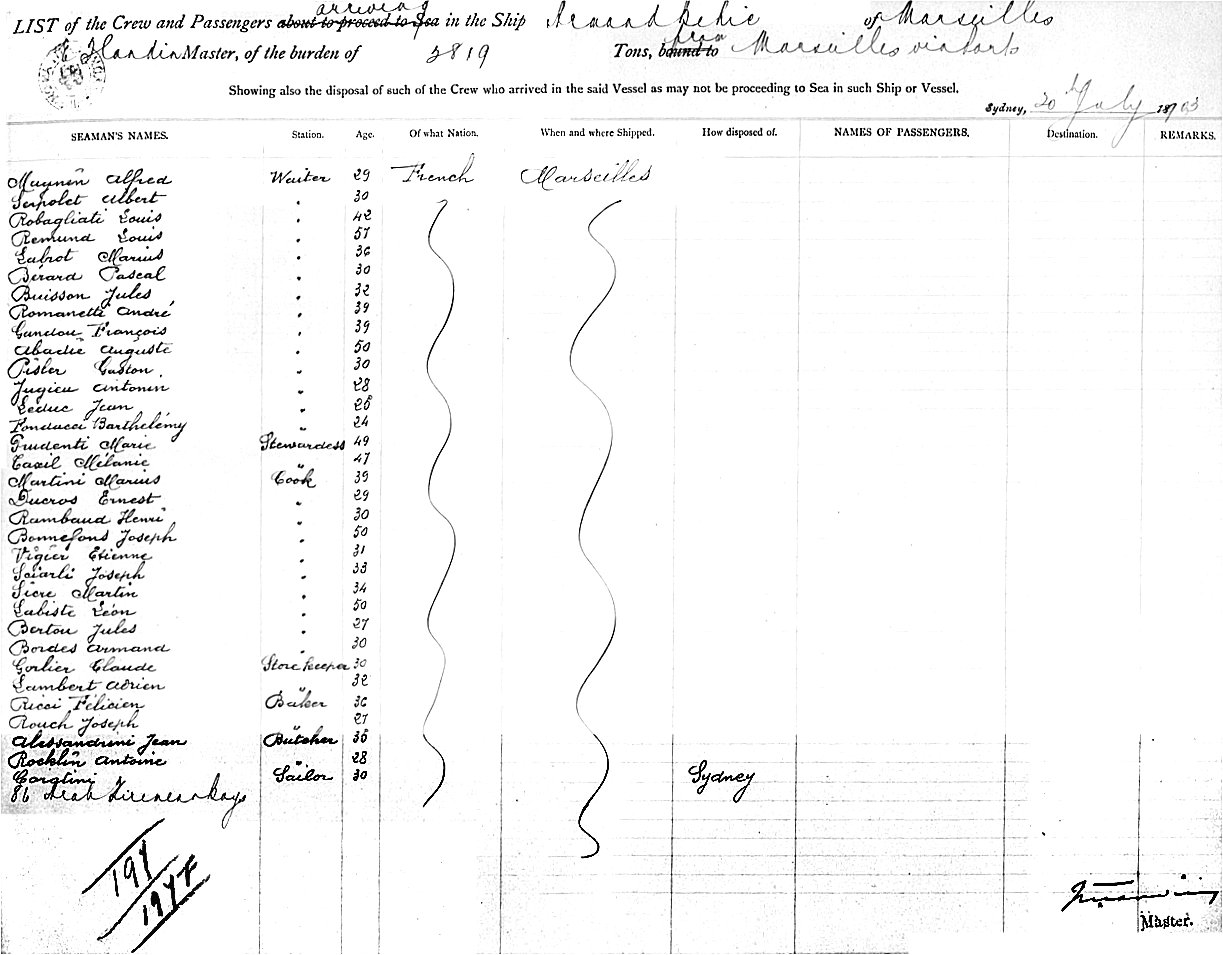 LIST of the Crew and Passengers about to proceed to Sea arriving in the Ship Armand Behic of Marseilles
Flandin Master, of the burden of 3819 Tons, bound to from Marseilles via ports
Showing also the disposal of such of the Crew who arrived in the said Vessel as may not be proceeding to Sea in such Ship or Vessel.
Sydney, 20 July 1903
SEAMAN'S NAMES. Station. Age. Of what Nation. When and where Shipped. How disposed of. NAMES OF PASSENGERS. Destination. REMARKS.
Maynen Alfred Waiter 29 French Marseilles
Serpolet Albert " 30
Robagliati Louis " 42
Remund Louis " 57
Labrot Marius " 36
Bérard Pascal " 30
Buisson Jules " 32
Romanetti André " 39
Gandou François " 39
Abadie Auguste " 50
Pisler Gaston " 30
Jugieu Antonin " 28
Leduc Jean " 25
Fonducci Barthelémy " 24
Prudenti Marie Stewardess 49
Caxil Mélanie " 47
Martini Marius Cook 39
Ducros Ernest " 29
Rambaud Henri " 30
Bonnefons Joseph " 50
Vigier Etienne " 31
Sciarli Joseph " 33
Sicre Martin " 34
Labiste Léon " 50
Berton Jules " 27
Bordes Armand " 30
Gorlier Claude Storekeeper 30
Lambert Adrien " 32
Ricci Félicien Baker 36
Rouch Joseph " 27
Alessandrini Jean Butcher 36
Rocklin Antoine " 28
Coratini Sailor 30 Sydney
86 Arab Firemen Boys
197
197
Master.